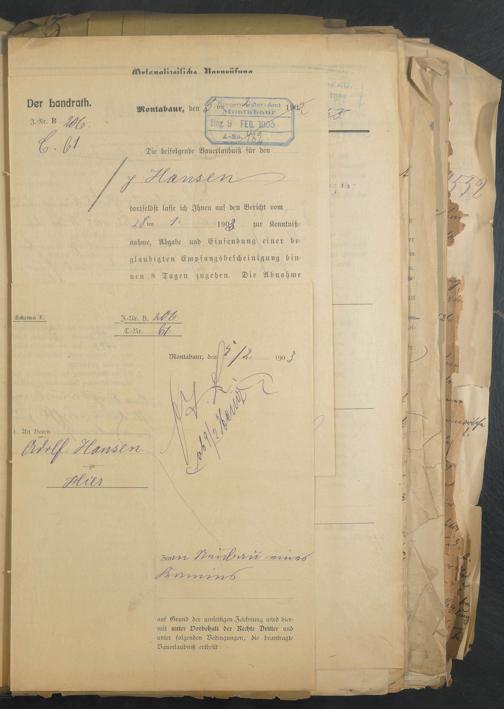 Ortspolizeiliche Bauprüfung
Der Landrath.
J.-Nr. B 206.
C. 61
Montabaur, den 5 2 1903
Bürgermeister-Amt
Montabaur
Eing. 9 FEB. 1903
J.-No. 769
Die beifolgende Bauerlaubniß für den
Hansen
dortselbst lasse ich Ihnen auf den Bericht vom
28 ten 1. 1903 zur Kenntniß-
nahme, Abgabe und Einsendung einer be-
glaubigten Empfangsbescheinigung bin-
nen 8 Tagen zugehen. Die Abnahme
Schema E.
J.-Nr. B. 206
C.-Nr. 61
Montabaur, den 5/2 1903
An Herrn
Adolf Hansen
Hier
Zum Neubau eines
Kamins
auf Grund der umseitigen Zeichnung wird hier-
mit unter Vorbehalt der Rechte Dritter und
unter folgenden Bedingungen, die beantragte
Bauerlaubniß ertheilt: -